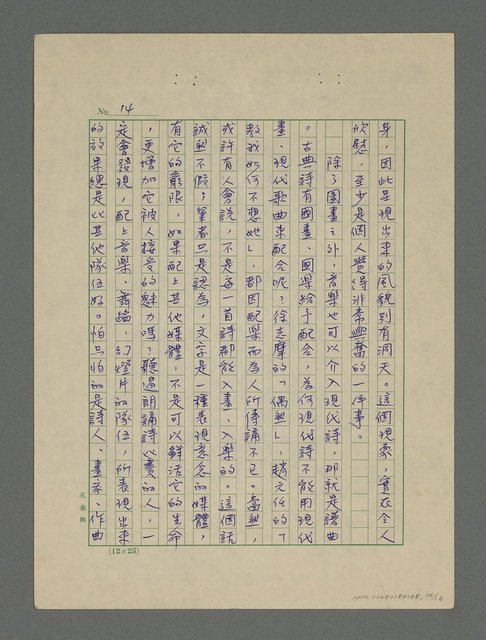 No. 14
身，因此呈現出來的風貌別有洞天。這個現象，實在令人
欣慰，至少是個人覺得非常興奮的一件事。
除了圖畫之外，音樂也可以介入現代詩，那就是譜曲
。古典詩有國畫、國樂給予配合，為何現代詩不能用現代
畫、現代歌曲來配合呢？徐志摩的「偶然」，趙元任的「
教我如何不想她」，都因配樂而為人所傳誦不已。當然，
或許有人會說，不是每一首詩都能入畫、入樂的。這個話
誠然不假；筆者只是認為，文字是一種表現意念的媒體，
有它的窮限，如果配上其他媒體，不是可以鮮活它的生命
，更增加它被人接受的魅力嗎？聽過朗誦詩比賽的人，一
定會發現，配上音樂、舞蹈、幻燈片的隊伍，所表現出來
的效果總是比其他隊伍好。怕只怕的是詩人、畫家、作曲
孔雀牌
(12×25)
14/16